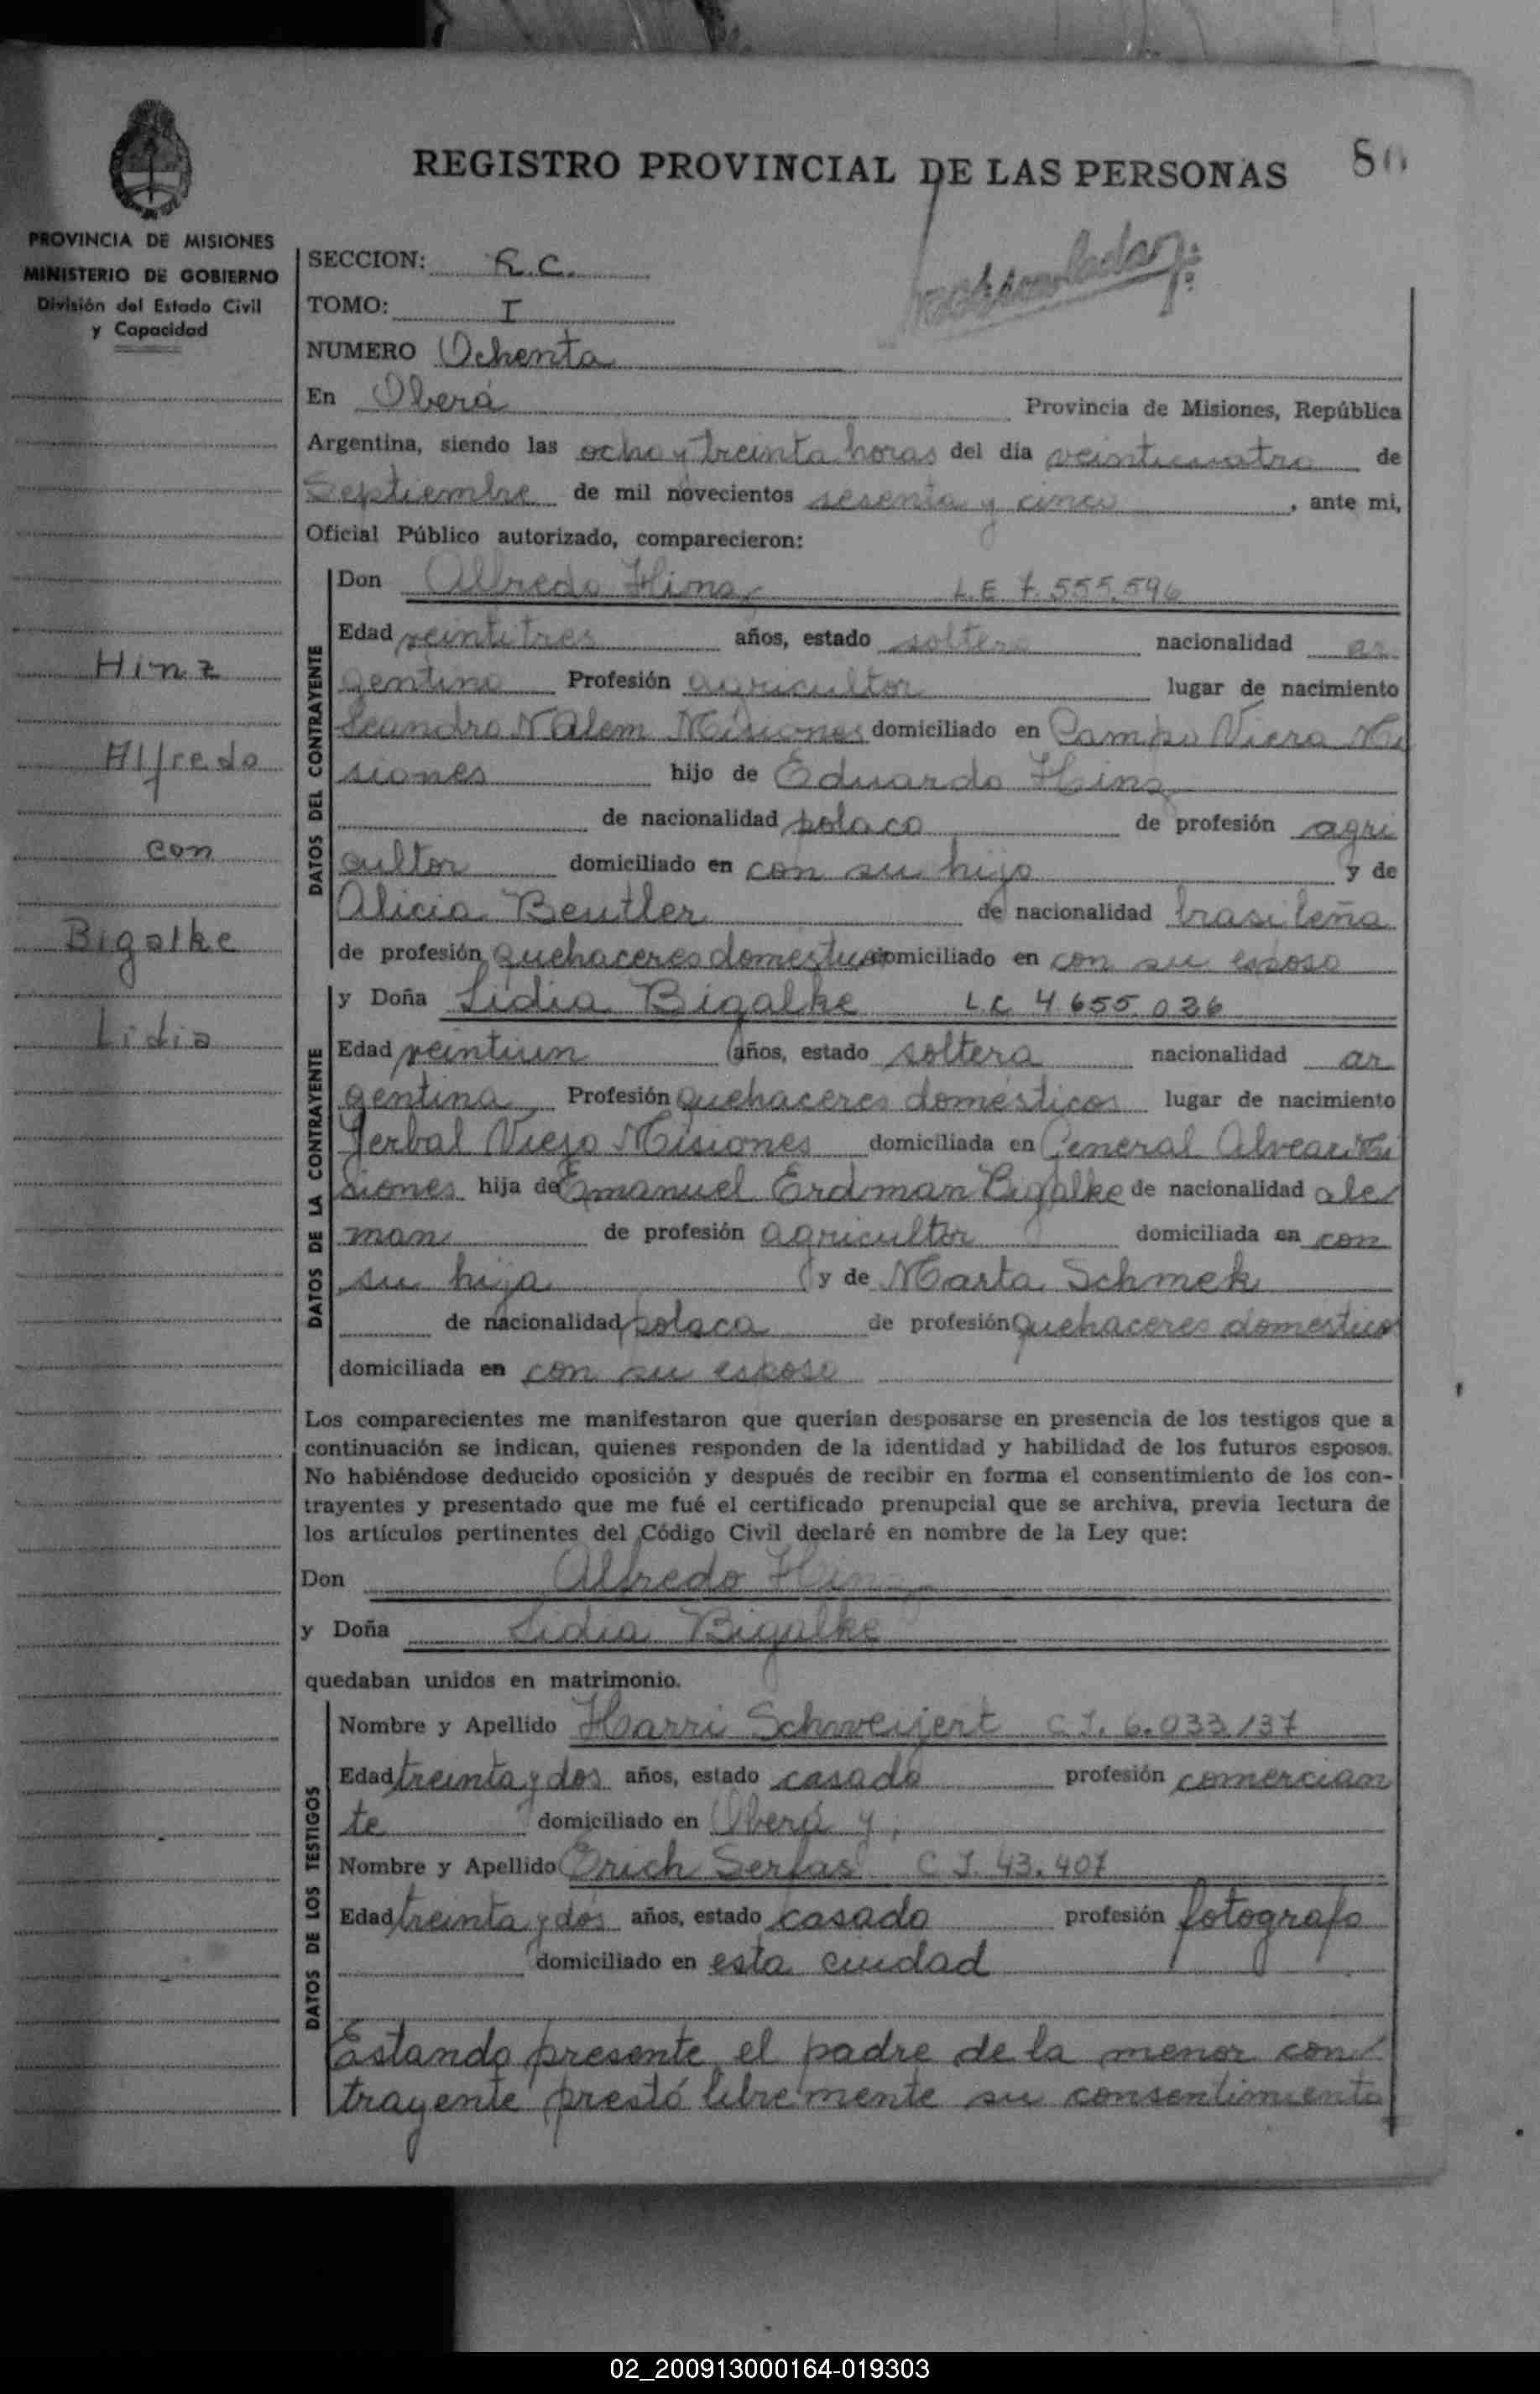 REGISTRO PROVINCIAL DE LAS PERSONAS
PROVINCIA DE MISIONES
MINISTERIO DE GOBIERNO
División del Estado Civil
y Capacidad
Hinz
Alfredo
con
Bigalke
Lidia
SECCION: R.C.
TOMO: I
NUMERO Ochenta
En Oberá Provincia de Misiones, República
Argentina, siendo las ocho y treinta horas del día veinticuatro de
Septiembre de mil novecientos sesenta y cinco, ante mi,
Oficial Público autorizado, comparecieron:
DATOS DEL CONTRAYENTE
Don Alfredo Hinz L.E 7.555.596
Edad veintitres años, estado soltero nacionalidad ar
gentino Profesión agricultor lugar de nacimiento
Leandro N Alem Misiones domiciliado en Campo Viera Mi
siones hijo de Eduardo Hinz
de nacionalidad polaco de profesión agri
cultor domiciliado en con su hijo y de
Alicia Beutler de nacionalidad brasileña
de profesión quehaceres domesticos domiciliado en con su esposo
DATOS DE LA CONTRAYENTE
y Doña Lidia Bigalke L.C 4.655.036
Edad veintiun años, estado soltera nacionalidad ar
gentina Profesión quehaceres domésticos lugar de nacimiento
Yerbal Viejo Misiones domiciliada en General Alvear Mi
siones hija de Emanuel Erdman Bigalke de nacionalidad ale
man de profesión agricultor domiciliada en con
su hija y de Marta Schmek
de nacionalidad polaca de profesión quehaceres domesticos
domiciliada en con su esposo
Los comparecientes me manifestaron que querían desposarse en presencia de los testigos que a
continuación se indican, quienes responden de la identidad y habilidad de los futuros esposos.
No habiéndose deducido oposición y después de recibir en forma el consentimiento de los con-
trayentes y presentado que me fué el certificado prenupcial que se archiva, previa lectura de
los artículos pertinentes del Código Civil declaré en nombre de la Ley que:
Don Alfredo Hinz
y Doña Lidia Bigalke
quedaban unidos en matrimonio.
DATOS DE LOS TESTIGOS
Nombre y Apellido Harri Schweijert C I. 6.033/37
Edad treinta y dos años, estado casado profesión comercian
te domiciliado en Oberá y
Nombre y Apellido Erich Serfas C I. 43.407
Edad treinta y dos años, estado casado profesión fotografo
domiciliado en esta ciudad
Estando presente el padre de la menor con
trayente prestó libremente su consentimiento
02_200913000164-019303